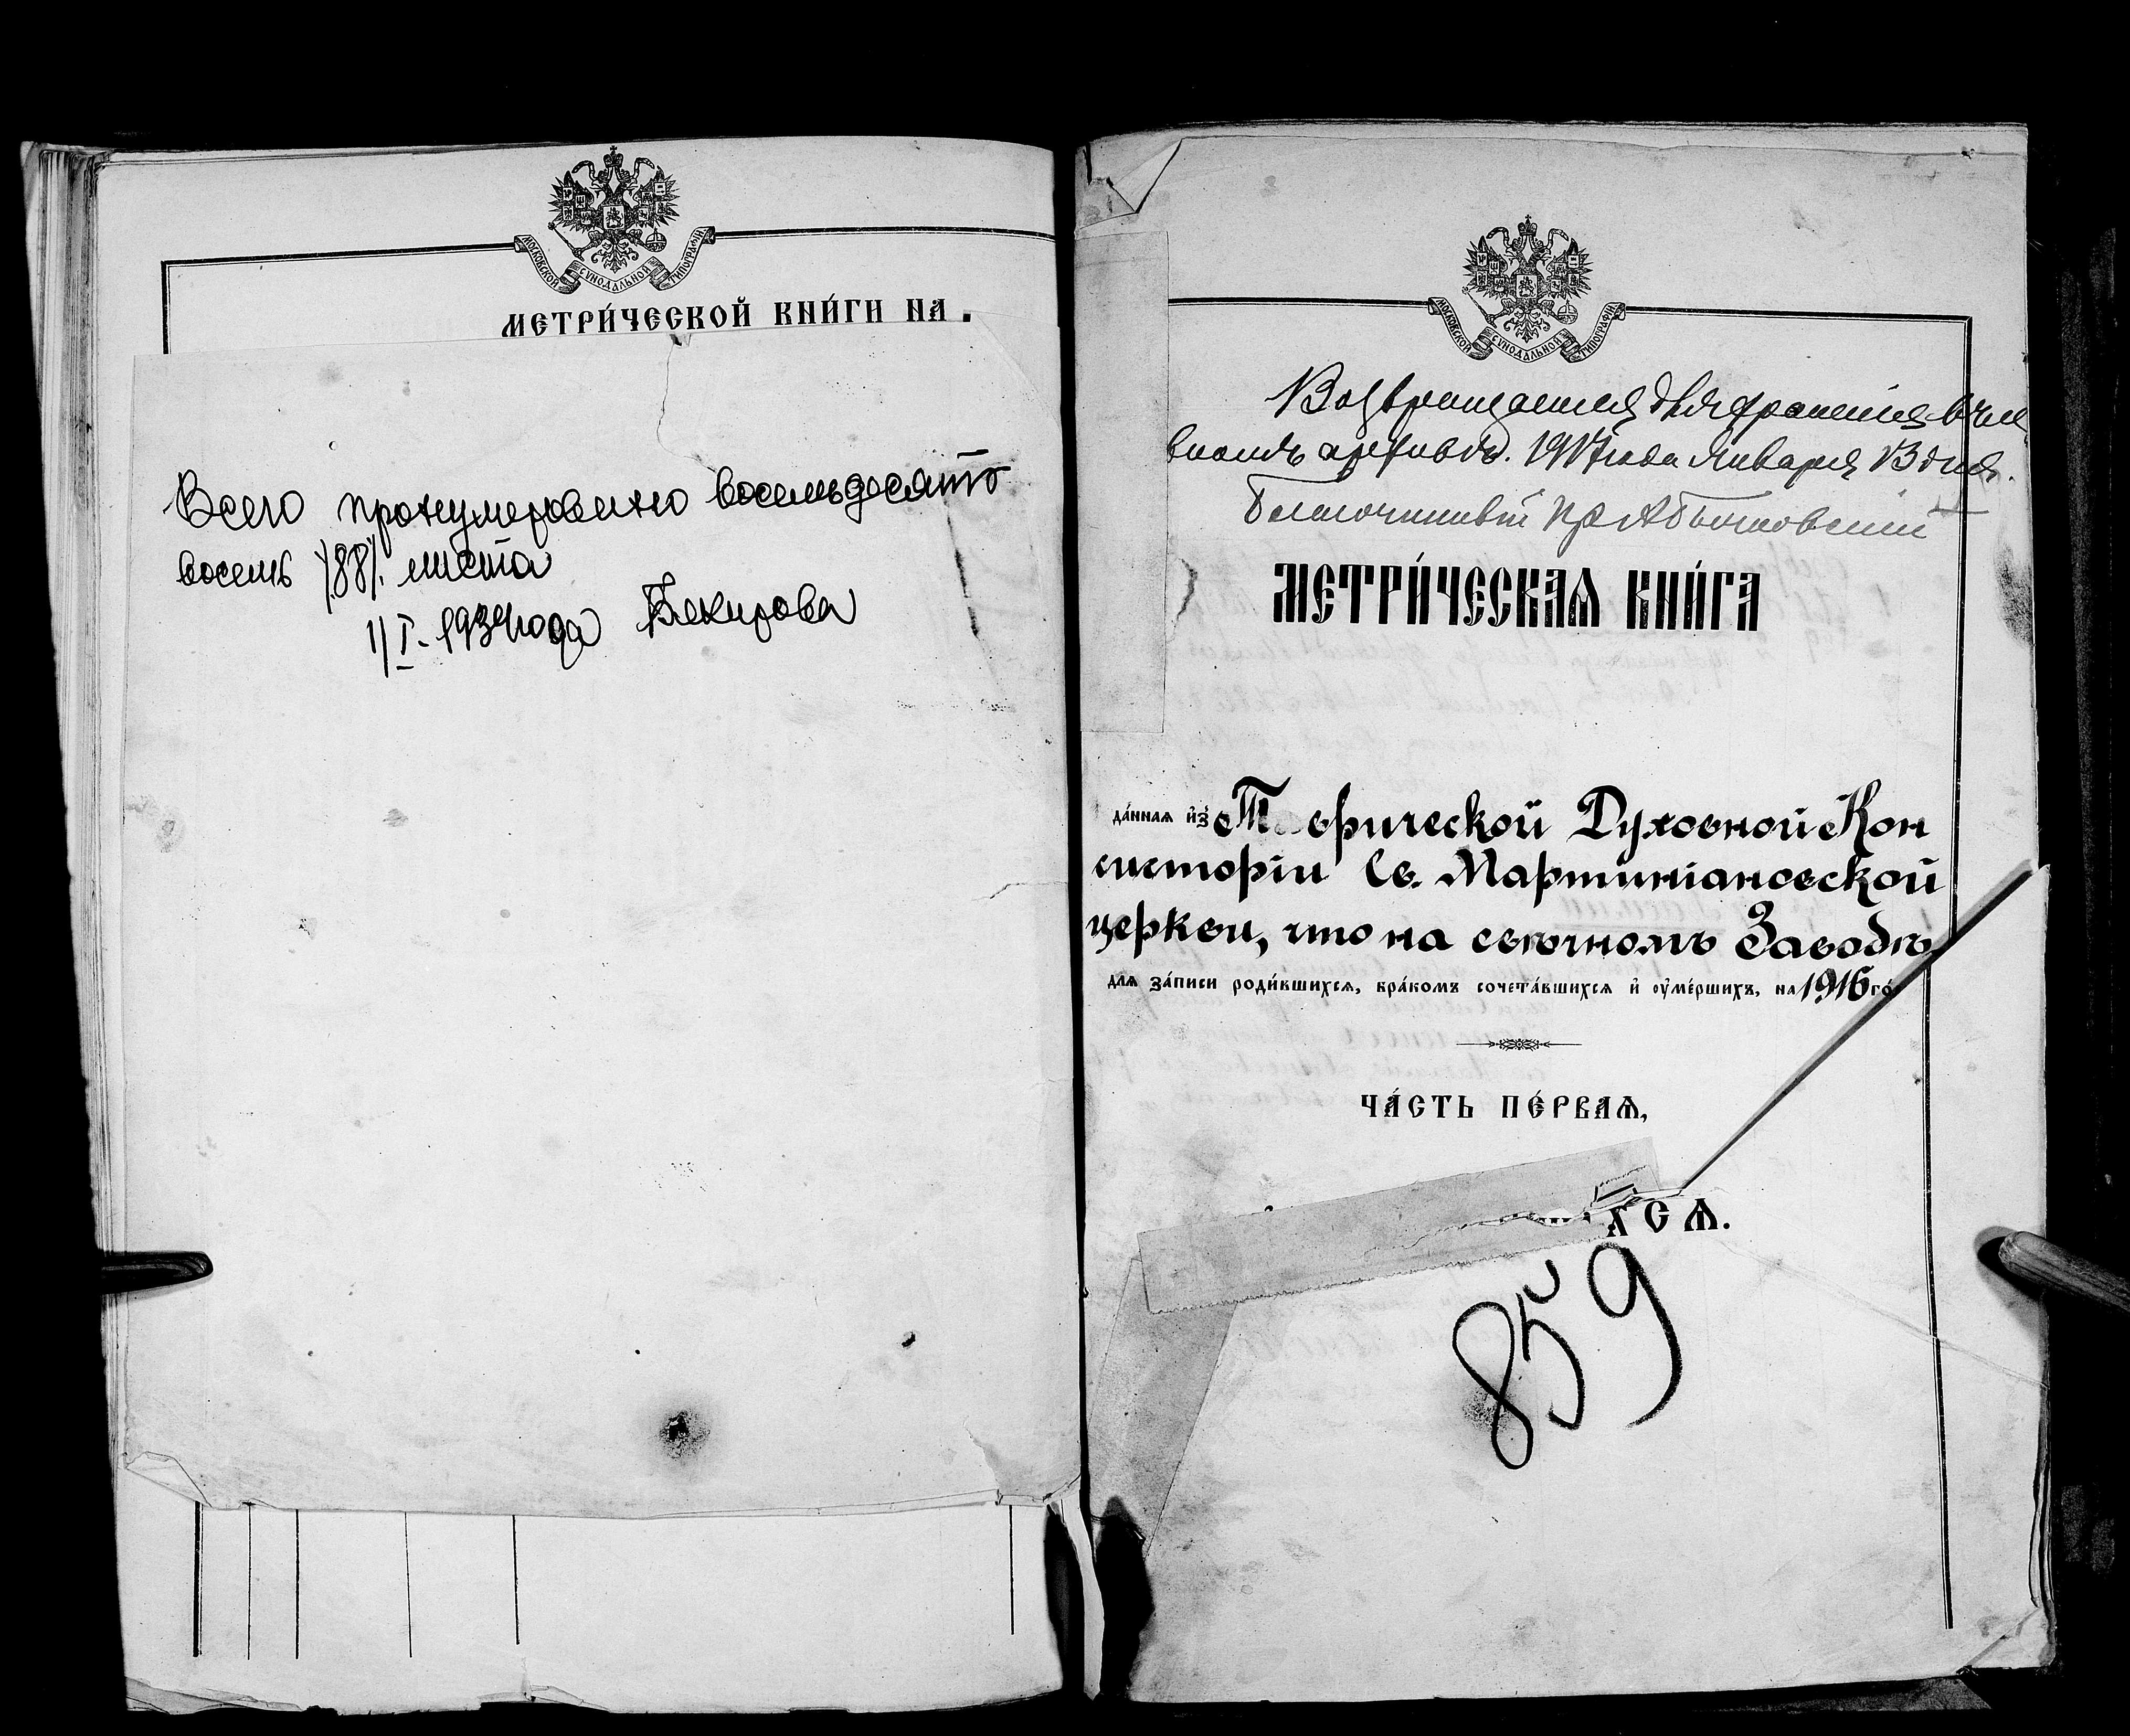 МОСКОВСКОЙ СѴНОДАЛЬНОЙ ТИПОГРАФІИ
МЕТРИ́ЧЕСКОЙ КНИ́ГИ НА
Всего пронумеровано восемьдесят
восемь /88/. листа
1/I-1934 года Бекирова
МОСКОВСКОЙ СѴНОДАЛЬНОЙ ТИПОГРАФІИ
Возвращается для храненія въ
архивъ. 1917 года Января 13 дня.
Благочинный
МЕТРИ́ЧЕСКАѦ КНИ́ГА
да́ннаѧ из Таврической Духовной Кон
систоріи Св. Мартиніановской
церкви, что на свѣчномъ Заводѣ
длѧ за́писи роди́вшихсѧ, бра́комъ сочета́вшихсѧ и҆ ᲂу҆ме́ршихъ, на 1916 го
ЧА́СТЬ ПЕ́РВАѦ,
ХСѦ.
859